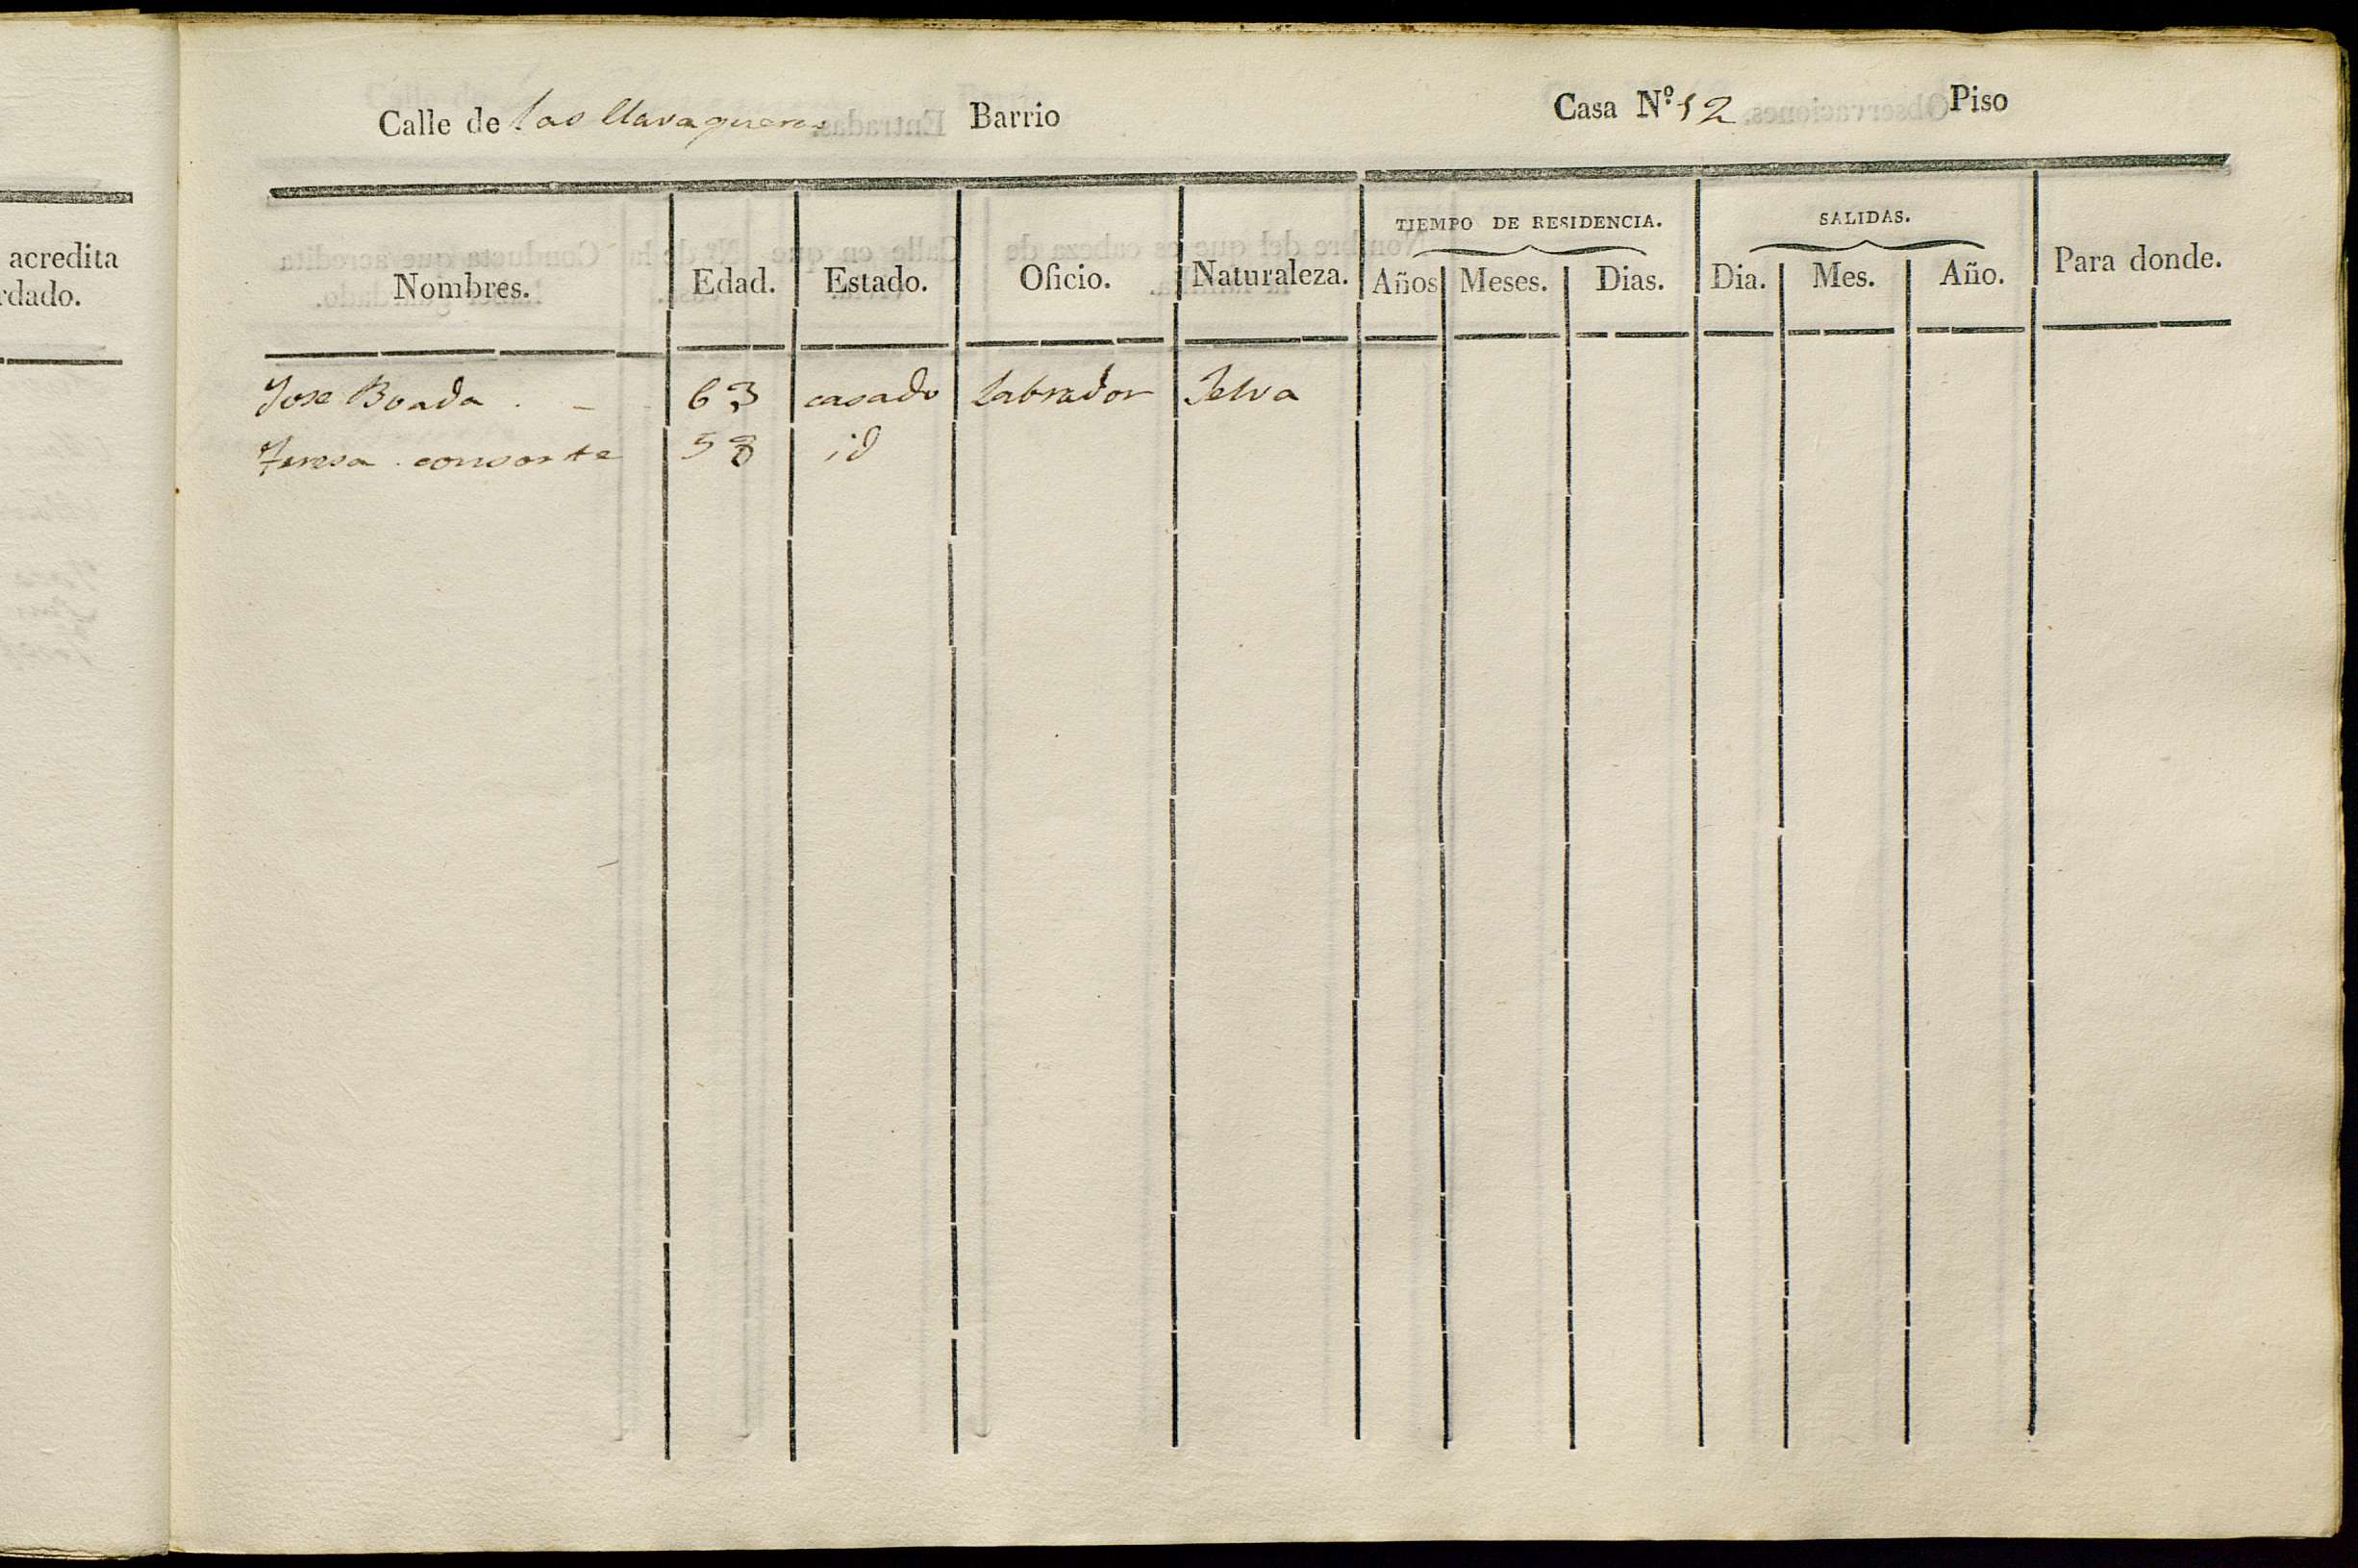 acredita
rdado.
Calle de las llavaqueras Barrio Casa Nº 12 Piso
TIEMPO DE RESIDENCIA. SALIDAS.
Nombres. Edad. Estado. Oficio. Naturaleza. Años Meses. Dias. Dia. Mes. Año. Para donde.
Jose Boada . - 63 casado labrador Selva
Teresa consorte 58 id